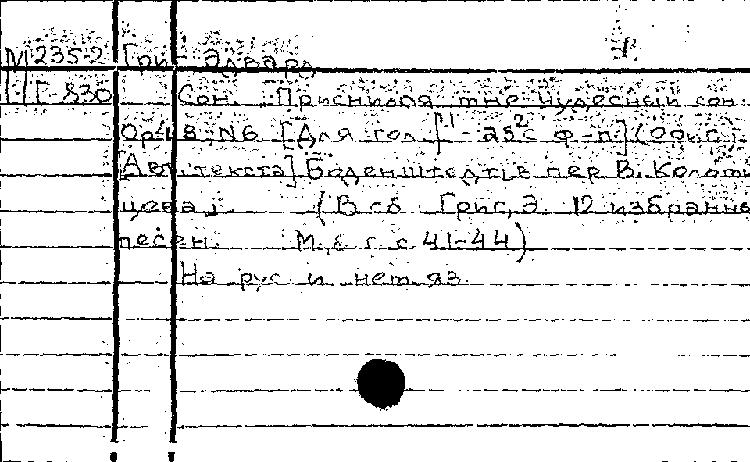 М 235-2 Григ Эдвард
Г-830 Сон. Приснился мне чудесный сон.
Op. 48, N6 [Для гол.] - as² с ф-п]
[Авт. текста] Боденштедт, в пер В. Коломи
цева. (В сб Григ, Э. 12 избранны
песен. М., б г. с 41-44)
На рус и нем яз.